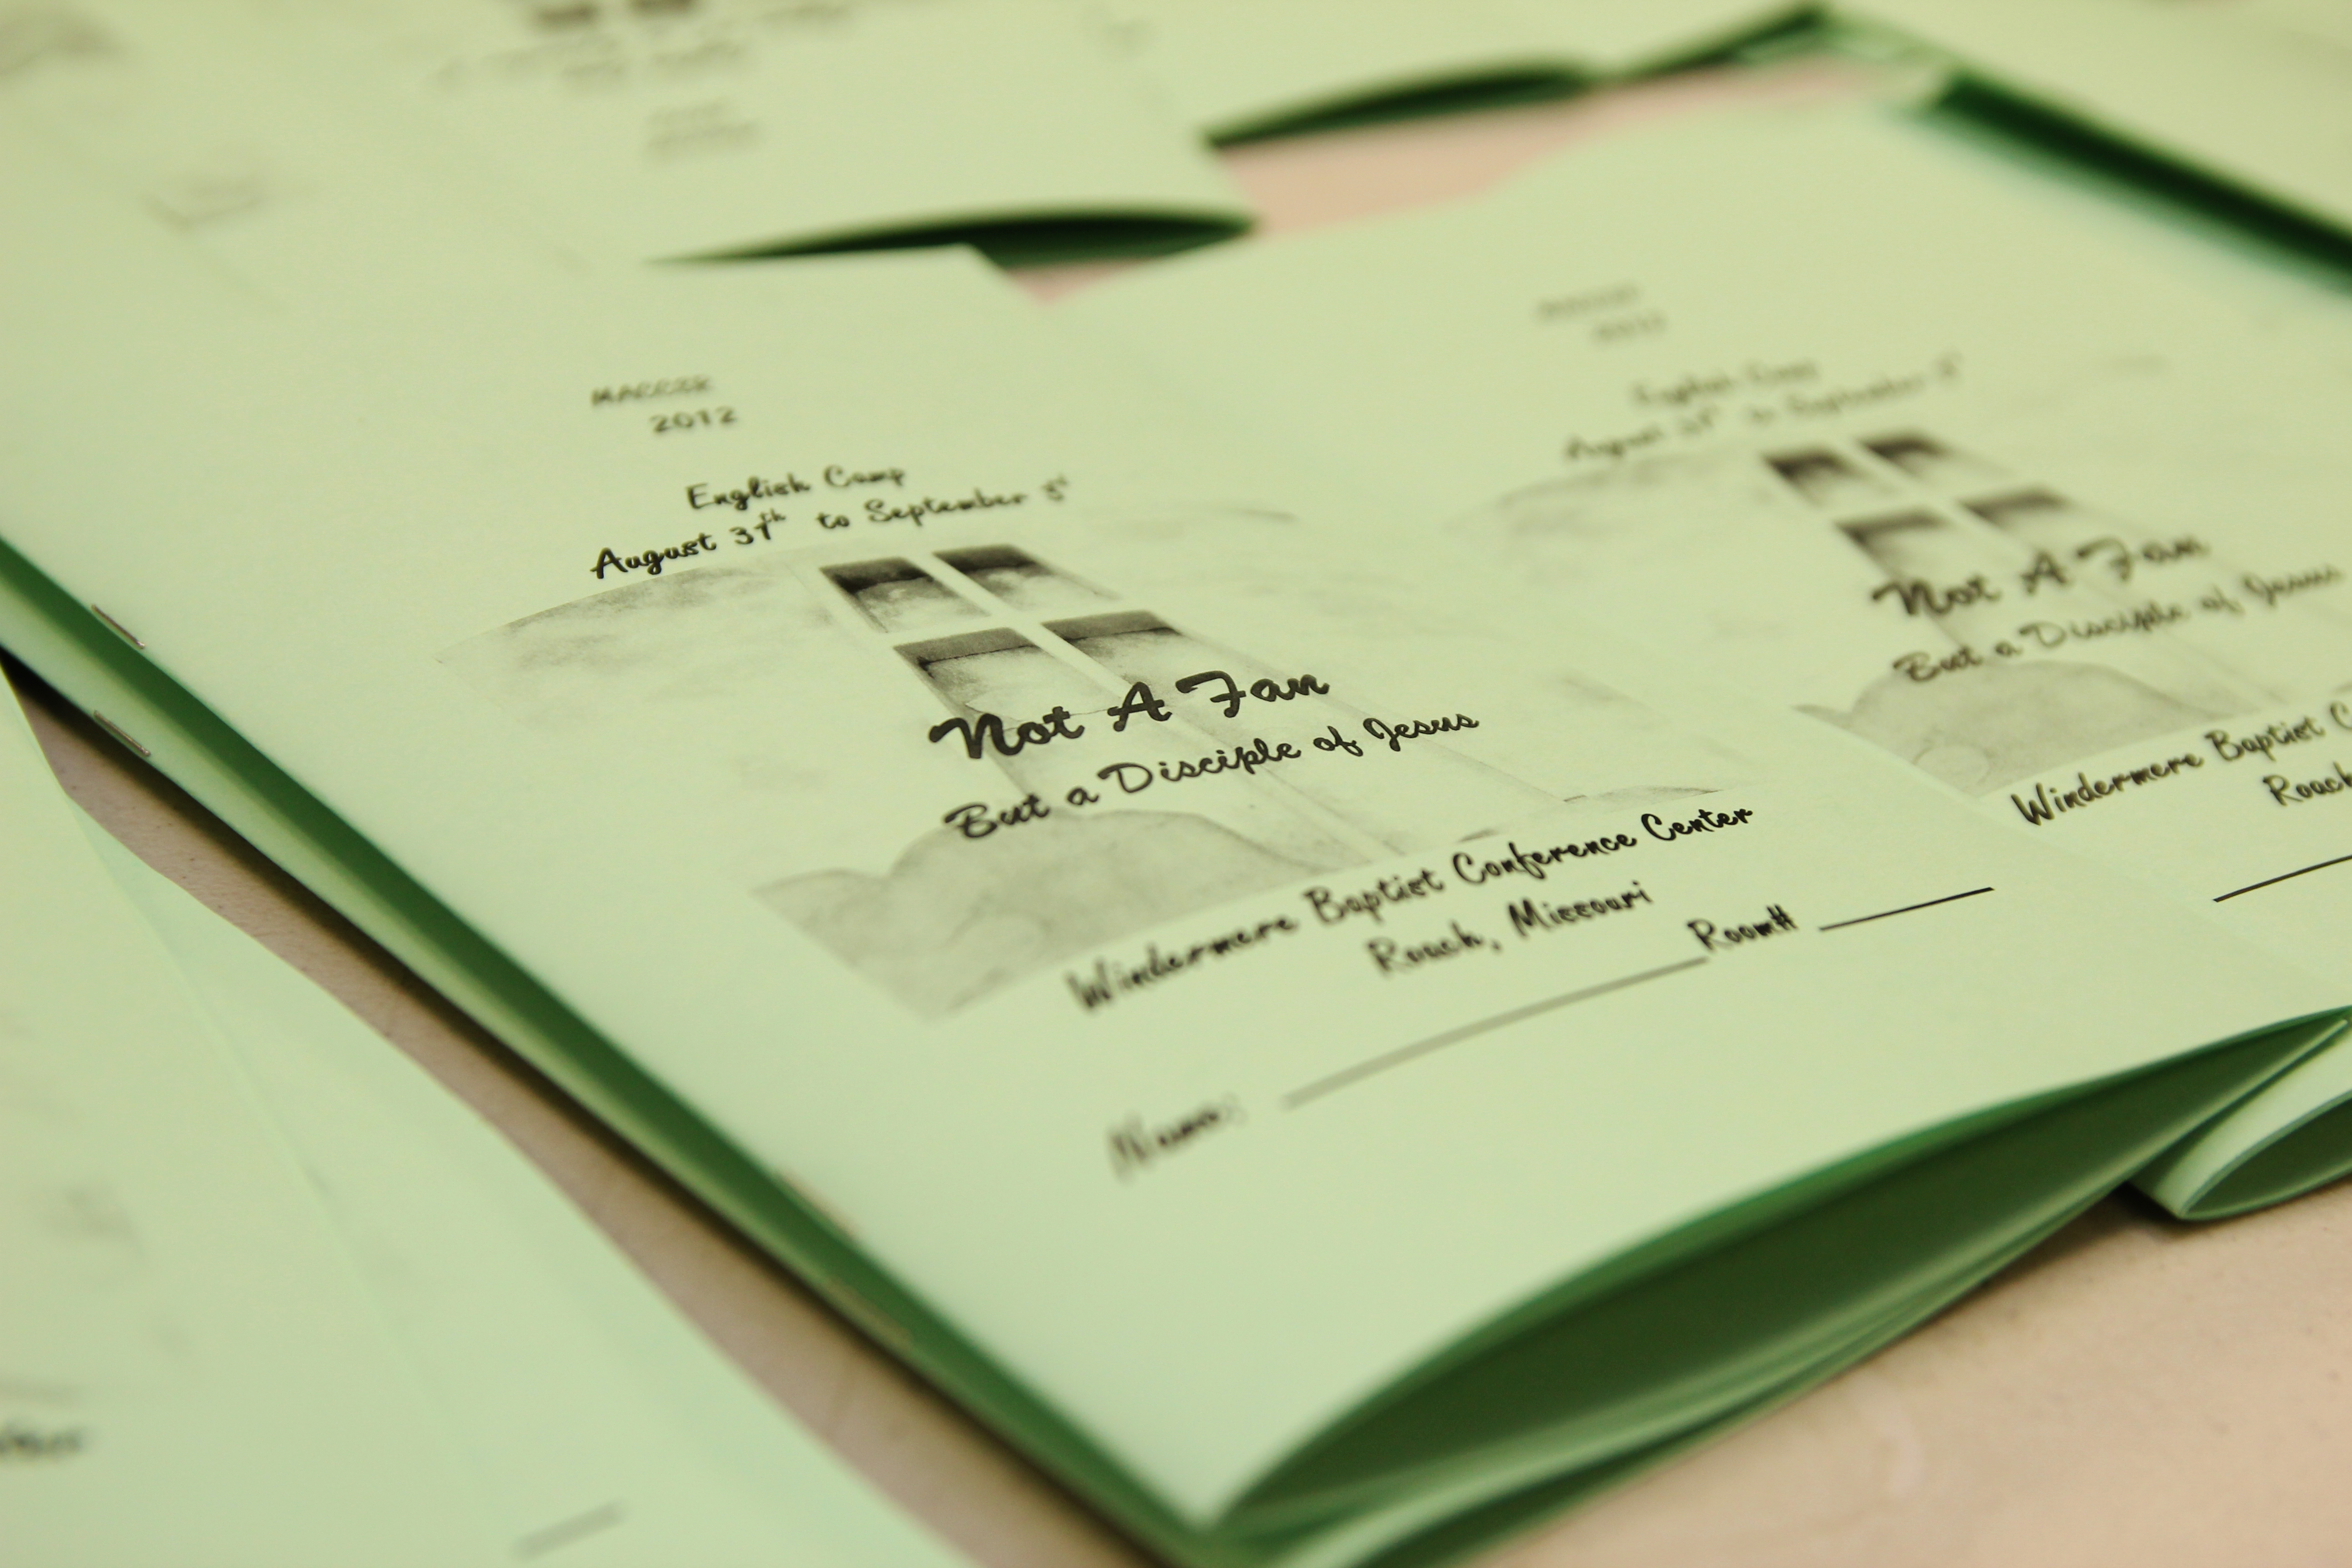 2012
English Camp
August 31th to September 3st
Not A Fan
But a Disciple of Jesus
Windermere Baptist Conference Center
Roach, Missouri
Name: Room#
English Camp
August 31th to September
Not A Fan
But a Disciple of Jesus
Windermere Baptist
Roach